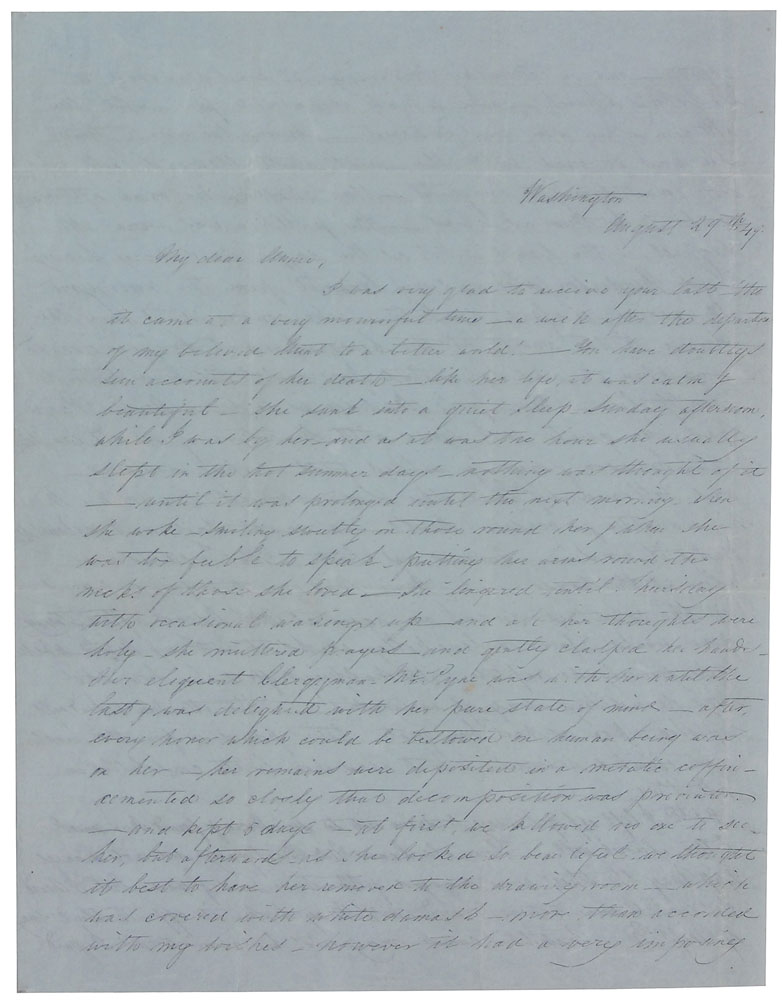 Washington
August 29th 49.
My dear
I was very glad to receive your last - tho
it came at a very mournful time - a week after the departure
of my beloved Aunt to a better world! - You have doubtless
seen accounts of her death - like her life, it was calm &
beautiful - She sunk into a quiet sleep Sunday afternoon,
while I was by her - and as it was the hour she usually
slept in the hot summer days - nothing was thought of it
- until it was prolonged until the next morning. Then
she woke - smiling sweetly on those round her & when she
was too feeble to speak - putting her arms round the
necks of those she loved - She lingered until Thursday
with occasional wakings up - and all her thoughts were
holy - she muttered prayers - and gently clasped her hands -
Our eloquent Clergyman Mr. Pyne was with her until the
last & was delighted with her pure state of mind - after,
every honor which could be bestowed on human being was
on her - her remains were deposited in a metalic coffin -
cemented so closely that decomposition was prevented.
- and kept 5 days - at first, we allowed no one to see
her, but afterwards, as she looked so beautiful we thought
it best to have her removed to the drawing room - which
was covered with white damask - more than accorded
with my wishes - however it had a very imposing